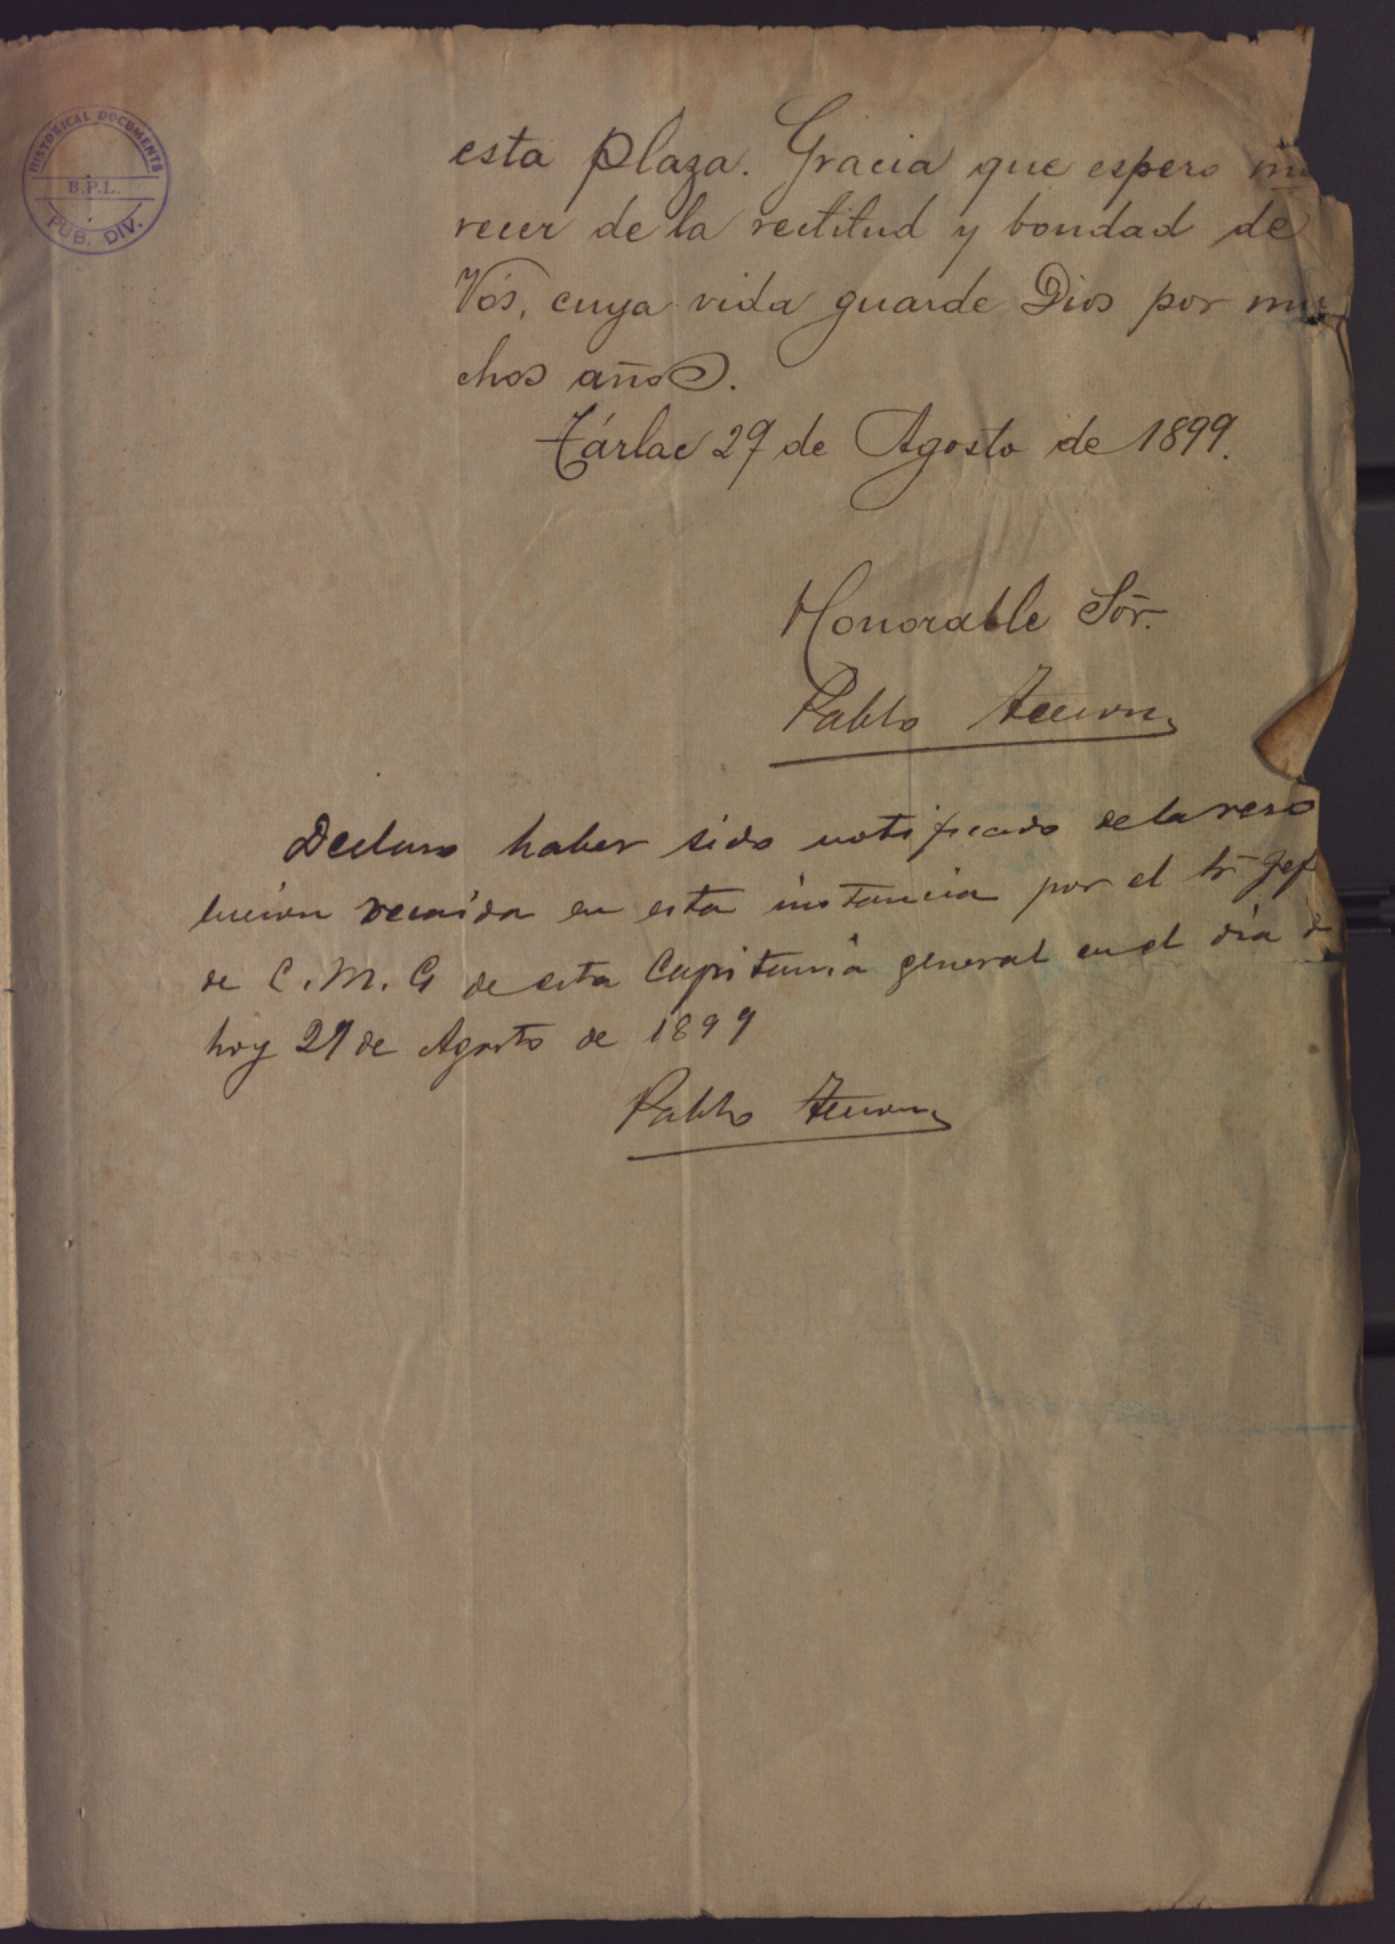 HISTORICAL DOCUMENTS
B.P.L.
PUB. DIV.
esta plaza. Gracia que espero me
recer de la rectitud y bondad de
Vós, cuya vida guarde Dios por mu
chos años.
Tárlac 29 de Agosto de 1899.
Honorable Sõr.
Pablo Tecson
Declaro haber sido notificado de la reso
lucion recaida en esta instancia por el Sr Jef
de C. M. G de esta Capitania general en el dia d
hoy 29 de Agosto de 1899
Pablo Tecson